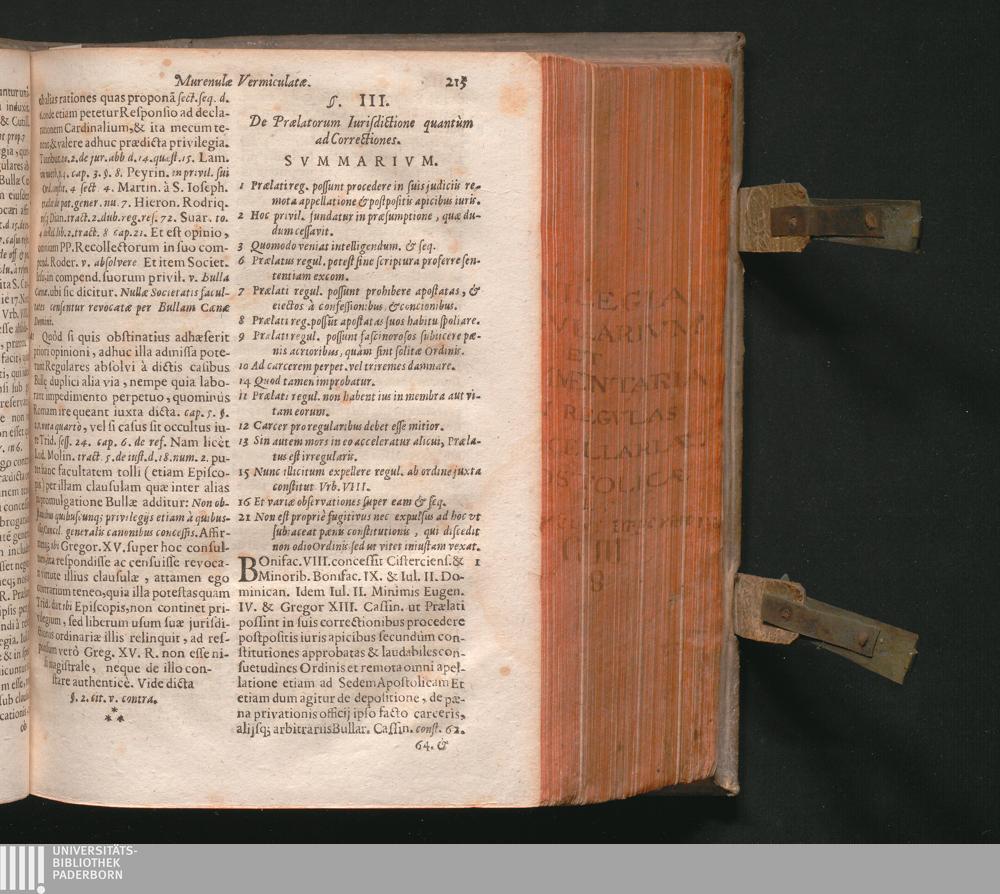 Murenulæ Vermiculatæ. 215
rationes quas proponā sect. seq. d.
etiam petetur Responsio ad decla-
Cardinalium, & ita mecum te-
& valere adhuc prædicta privilegia.
to. 2. de jur. abb d. 14. quæst. 15. Lam.
cap. 3. §. 8. Peyrin. in privil. sui
4 sect 4. Martin. à S. Ioseph.
de pot. gener. nu. 7. Hieron. Rodriq.
Dian. tract. 2. dub. reg. res. 72. Suar. to.
lib. 2. tract. 8 cap. 21. Et est opinio,
PP. Recollectorum in suo com-
Roder. v. absolvere Et item Societ.
in compend. suorum privil. v. Bulla
ubi sic dicitur. Nullæ Societatis facul-
censentur revocatæ per Bullam Cænæ
Domini.
Quòd si quis obstinatius adhæserit
opinioni, adhuc illa admissa pote-
Regulares absolvi à dictis casibus
Bullæ duplici alia via, nempe quia labo-
impedimento perpetuo, quominus
Romam ire queant iuxta dicta. cap. 5. §.
quartò, vel si casus sit occultus iu-
Trid. sess. 24. cap. 6. de ref. Nam licèt
Lud. Molin. tract 5. de iust. d. 18. num. 2. pu-
hanc facultatem tolli (etiam Episco-
per illam clausulam quæ inter alias
promulgatione Bullæ additur: Non ob-
quibuscunq; privilegijs etiam à quibus-
generalis canonibus concessis. Affir-
Gregor. XV. super hoc consul-
respondisse ac censuisse revoca-
virtute illius clausulæ, attamen ego
contrarium teneo, quia illa potestas quam
Trid. dat ibi Episcopis, non continet pri-
vilegium, sed liberum usum suæ jurisdi-
ordinariæ illis relinquit, ad res-
verò Greg. XV. R. non esse ni-
magistrale, neque de illo con-
stare authenticè. Vide dicta
§. 2. cit. v. contra.
***
§. III.
De Prælatorum Iurisdictione quantùm
ad Correctiones.
SVMMARIVM.
1 Prælati reg. possunt procedere in suis judiciis re-
mota appellatione & postpositis apicibus iuris.
2 Hoc privil. fundatur in præsumptione, quæ du-
dum cessavit.
3 Quomodo veniat intelligendum. & seq.
6 Prælatus regul. potest sine scriptura proferre sen-
tentiam excom.
7 Prælati regul. possunt prohibere apostatas, &
eiectos à confessionibus & concionibus.
8 Prælati reg. possūt apostatas suos habitu spoliare.
9 Prælati regul. possunt facinorosos subiicere pœ-
nis acrioribus, quàm sint solitæ Ordinis.
10 Ad carcerem perpet. vel triremes damnare.
14 Quod tamen improbatur.
11 Prælati regul. non habent ius in membra aut vi-
tam eorum.
12 Carcer pro regularibus debet esse mitior.
13 Sin autem mors in eo acceleratur alicui, Præla-
tus est irregularis.
15 Nunc illicitum expellere regul. ab ordine juxta
constitut Vrb. VIII.
16 Et variæ observationes super eam & seq.
21 Non est propriè fugitivus nec expulsus ad hoc vt
subiaceat pænis constitutionis, qui discedit
non odio Ordinis sed ut vitet iniustam vexat.
BOnifac. VIII. concessit Cisterciens. & 1
Minorib. Bonifac. IX. & Iul. II. Do-
minican. Idem Iul. II. Minimis Eugen.
IV. & Gregor XIII. Cassin. ut Prælati
possint in suis correctionibus procedere
postpositis iuris apicibus secundùm con-
stitutiones approbatas & laudabiles con-
suetudines Ordinis et remota omni apel-
latione etiam ad Sedem Apostolicam Et
etiam dum agitur de depositione, de pæ-
na privationis officij ipso facto carceris,
alijsq; arbitrariis Bullar. Cassin. const. 62.
64. &
ET
REGVLAS
8
UNIVERSITÄTS-
BIBLIOTHEK
PADERBORN